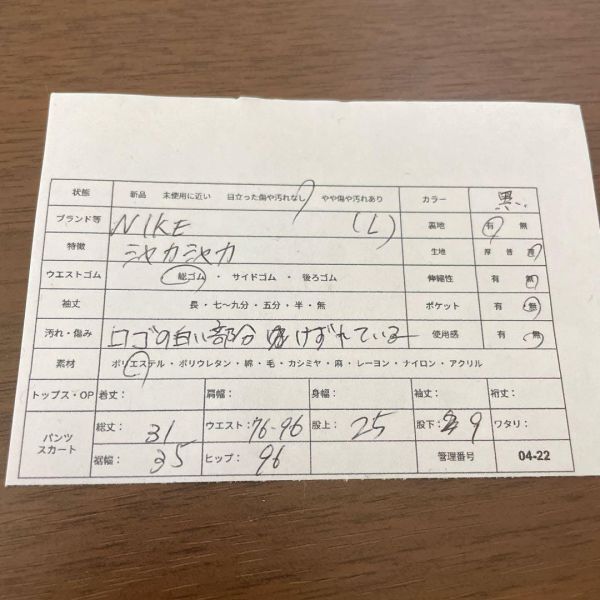 状態 新品 未使用に近い 目立った傷や汚れなし やや傷や汚れあり カラー 黒
ブランド等 NIKE (L) 裏地 有 無
特徴 シャカシャカ 生地 厚 普 薄
ウエストゴム 総ゴム ・ サイドゴム ・ 後ろゴム 伸縮性 有 無
袖丈 長・七〜九分・五分・半・無 ポケット 有 無
汚れ・傷み ロゴの白い部分 けずれている 使用感 有 無
素材 ポリエステル・ポリウレタン・綿・毛・カシミヤ・麻・レーヨン・ナイロン・アクリル
トップス・OP 着丈: 肩幅: 身幅: 袖丈: 裄丈:
パンツ スカート 総丈: 31 ウエスト: 76-96 股上: 25 股下: 9 ワタリ:
裾幅: 35 ヒップ: 96 管理番号 04-22